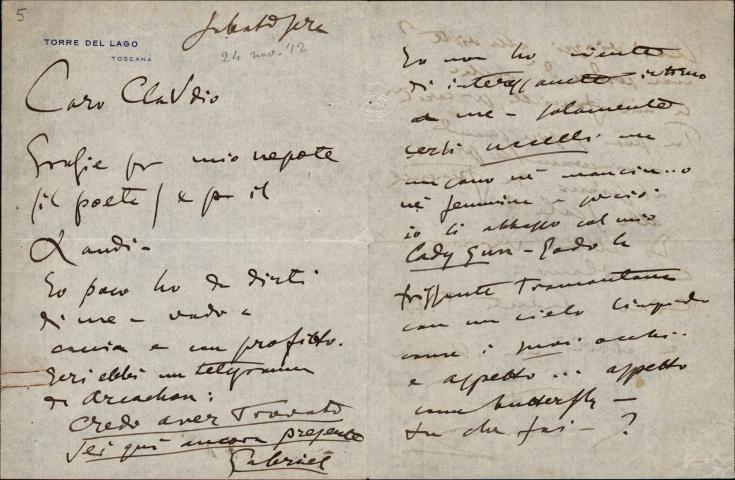 5
TORRE DEL LAGO
TOSCANA
Sabato sera
24 nov. '12
Caro Claudio
Grazie per mio nepote
(il poeta) e per il
Landi -
Io poco ho da dirti
di me - vado a
caccia e con profitto.
Ieri ebbi un telegramma
da Arcachon:
Credo aver trovato
Sei qui ancora presente
Gabriel
Io non ho niente
di interessante intorno
a me - solamente
certi uccelli
né
né femmine e
io li abbasso col mio
Lady Gun - Godo la
frizzante Tramontana
con un cielo limpido
come i suoi occhi..
e aspetto ... aspetto
come butterfly -
tu che fai - ?